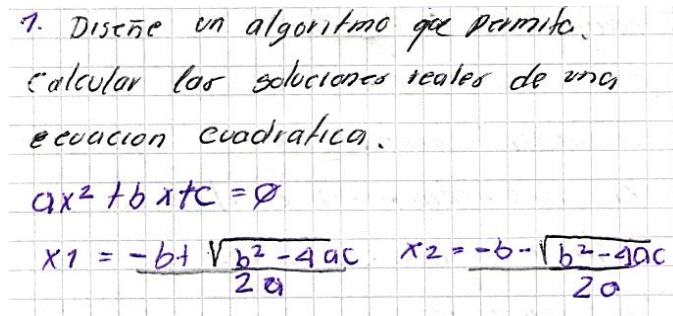 1. Diseñe un algoritmo que permita.
Calcular las soluciones reales de una
ecuacion cuadratica.
ax² + bx + c = 0
x1 = -b + √b² - 4ac / 2a x2 = -b - √b² - 4ac / 2a